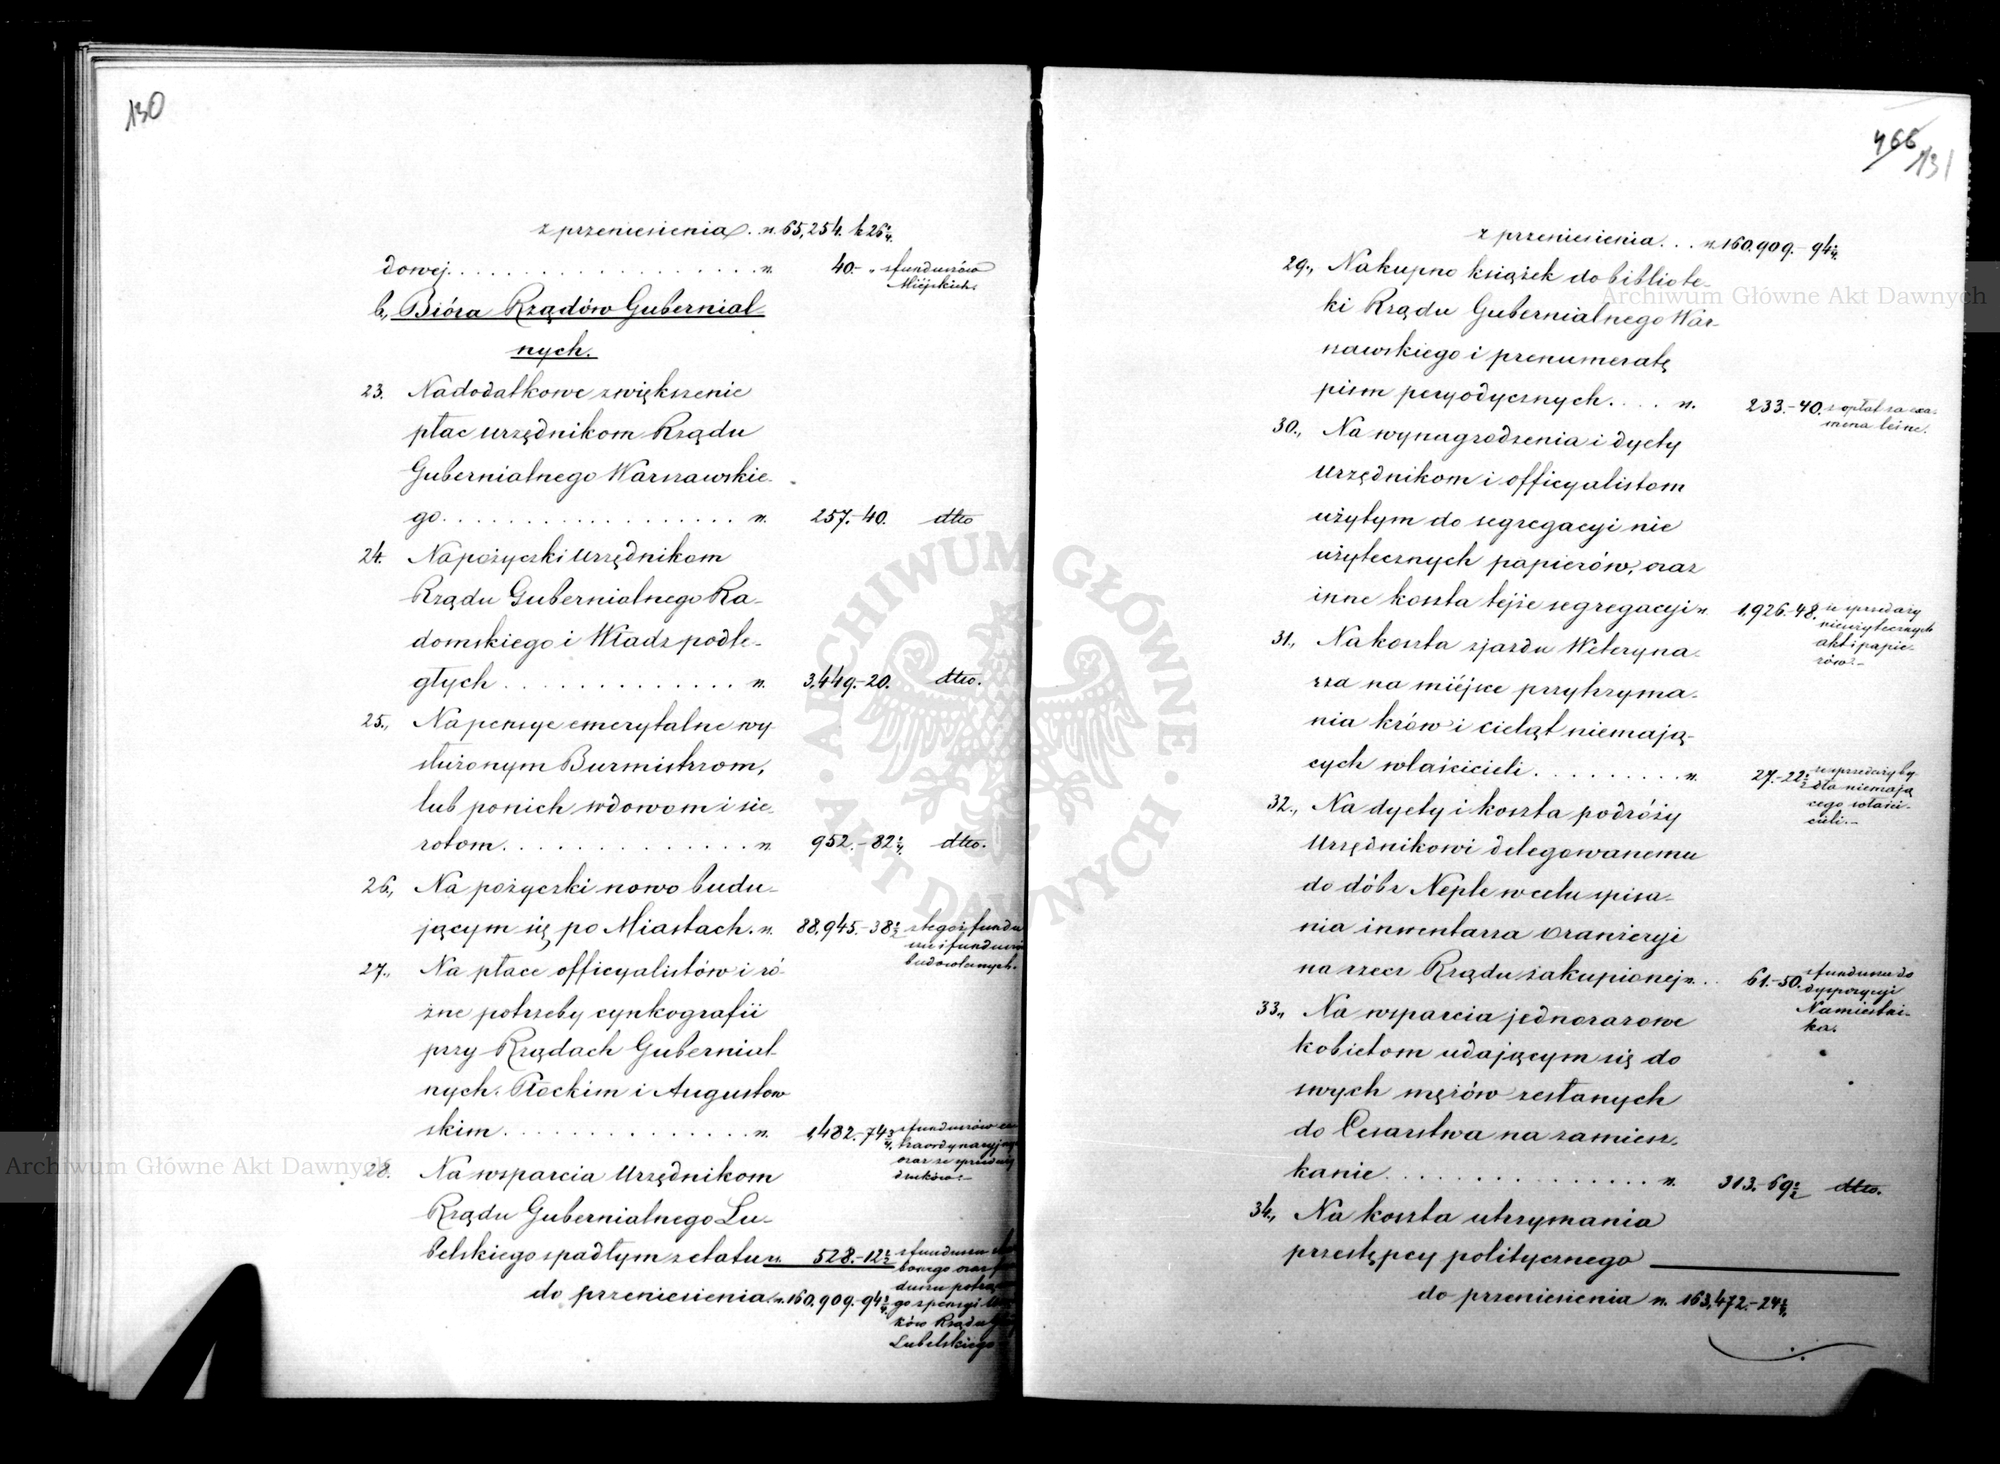 130
z przeniesienia . . „ 65,254. k 26¼.
dowej . . . . . . . . . . . . . . . . „ 40.- „ z funduszów
Miejskich.
b, Bióra Rządów Gubernial-
nych.
23. Na dodatkowe zwiększenie
płac urzędnikom Rządu
Gubernialnego Warszawskie-
go . . . . . . . . . . . . . . . . „ 257.-40. dtto
24. Na pożyczki urzędnikom
Rządu Gubernialnego Ra-
domskiego i Władz podle-
głych . . . . . . . . . . . . . „ 3,449.-20. dtto.
25., Na pensye emerytalne wy-
służonym Burmistrzom,
lub po nich wdowom i sie-
rotom . . . . . . . . . . . . . „ 952.-82¼. dtto.
26., Na pożyczki nowo budu-
jącym się po Miastach. „ 88,945.-38½ z tegoż fundu
szu i funduszów
budowlanych.
27., Na płace officyalistów i ró-
żne potrzeby cynkografii
przy Rządach Gubernial-
nych. Płockim i Augustow
skim . . . . . . . . . . . . . . „ 1,482.-74¾. z funduszów
oraz ze sprzedaży
druków.-
28. Na wsparcia Urzędnikom
Rządu Gubernialnego Lu-
belskiego spadłym z etatu „ 528.-12½ z funduszu
oraz
go z pensyi
ków Rządu
Lubelskiego
do przeniesienia. „ 160,909.-94¼.
466
131
z przeniesienia . . . „ 160.909.- 94¼.
29., Na kupno książek do bibliote-
ki Rządu Gubernialnego War-
szawskiego i prenumeratę
pism peryodycznych . . . . „ 233.-40. z opłat za exa-
mena leśne.
30., Na wynagrodzenia i dyety
Urzędnikom i officyalistom
użytym do segregacyi nie
użytecznych papierów, oraz
inne koszta tejże segregacyi „ 1,926.-48. ze sprzedaży
nieużytecznych
akt i papie-
rów.-
31., Na koszta zjazdu Weteryna-
rza na miejsce przytrzyma-
nia krów i cieląt niemają-
cych właścicieli . . . . . . . . . „ 27.-22½ ze sprzedaży by-
dła niemają
cego właści-
cieli.-
32., Na dyety i koszta podróży
Urzędnikowi delegowanemu
do dóbr Neple w celu spisa-
nia inwentarza oranżeryi
na rzecz Rządu zakupionej „ . . 61.-50. z funduszu do
dyspozycyi
Namiestni-
ka.
33., Na wsparcia jednorazowe
kobietom udającym się do
swych mężów zesłanych
do Cesarstwa na zamiesz-
kanie . . . . . . . . . . . . . . . „ 313.-69½ dtto.
34., Na koszta utrzymania
przestępcy politycznego
do przeniesienia „ 163,472.-24¼.
Archiwum Główne Akt Dawnych
Archiwum Główne Akt Dawnych
ARCHIWUM GŁÓWNE AKT DAWNYCH